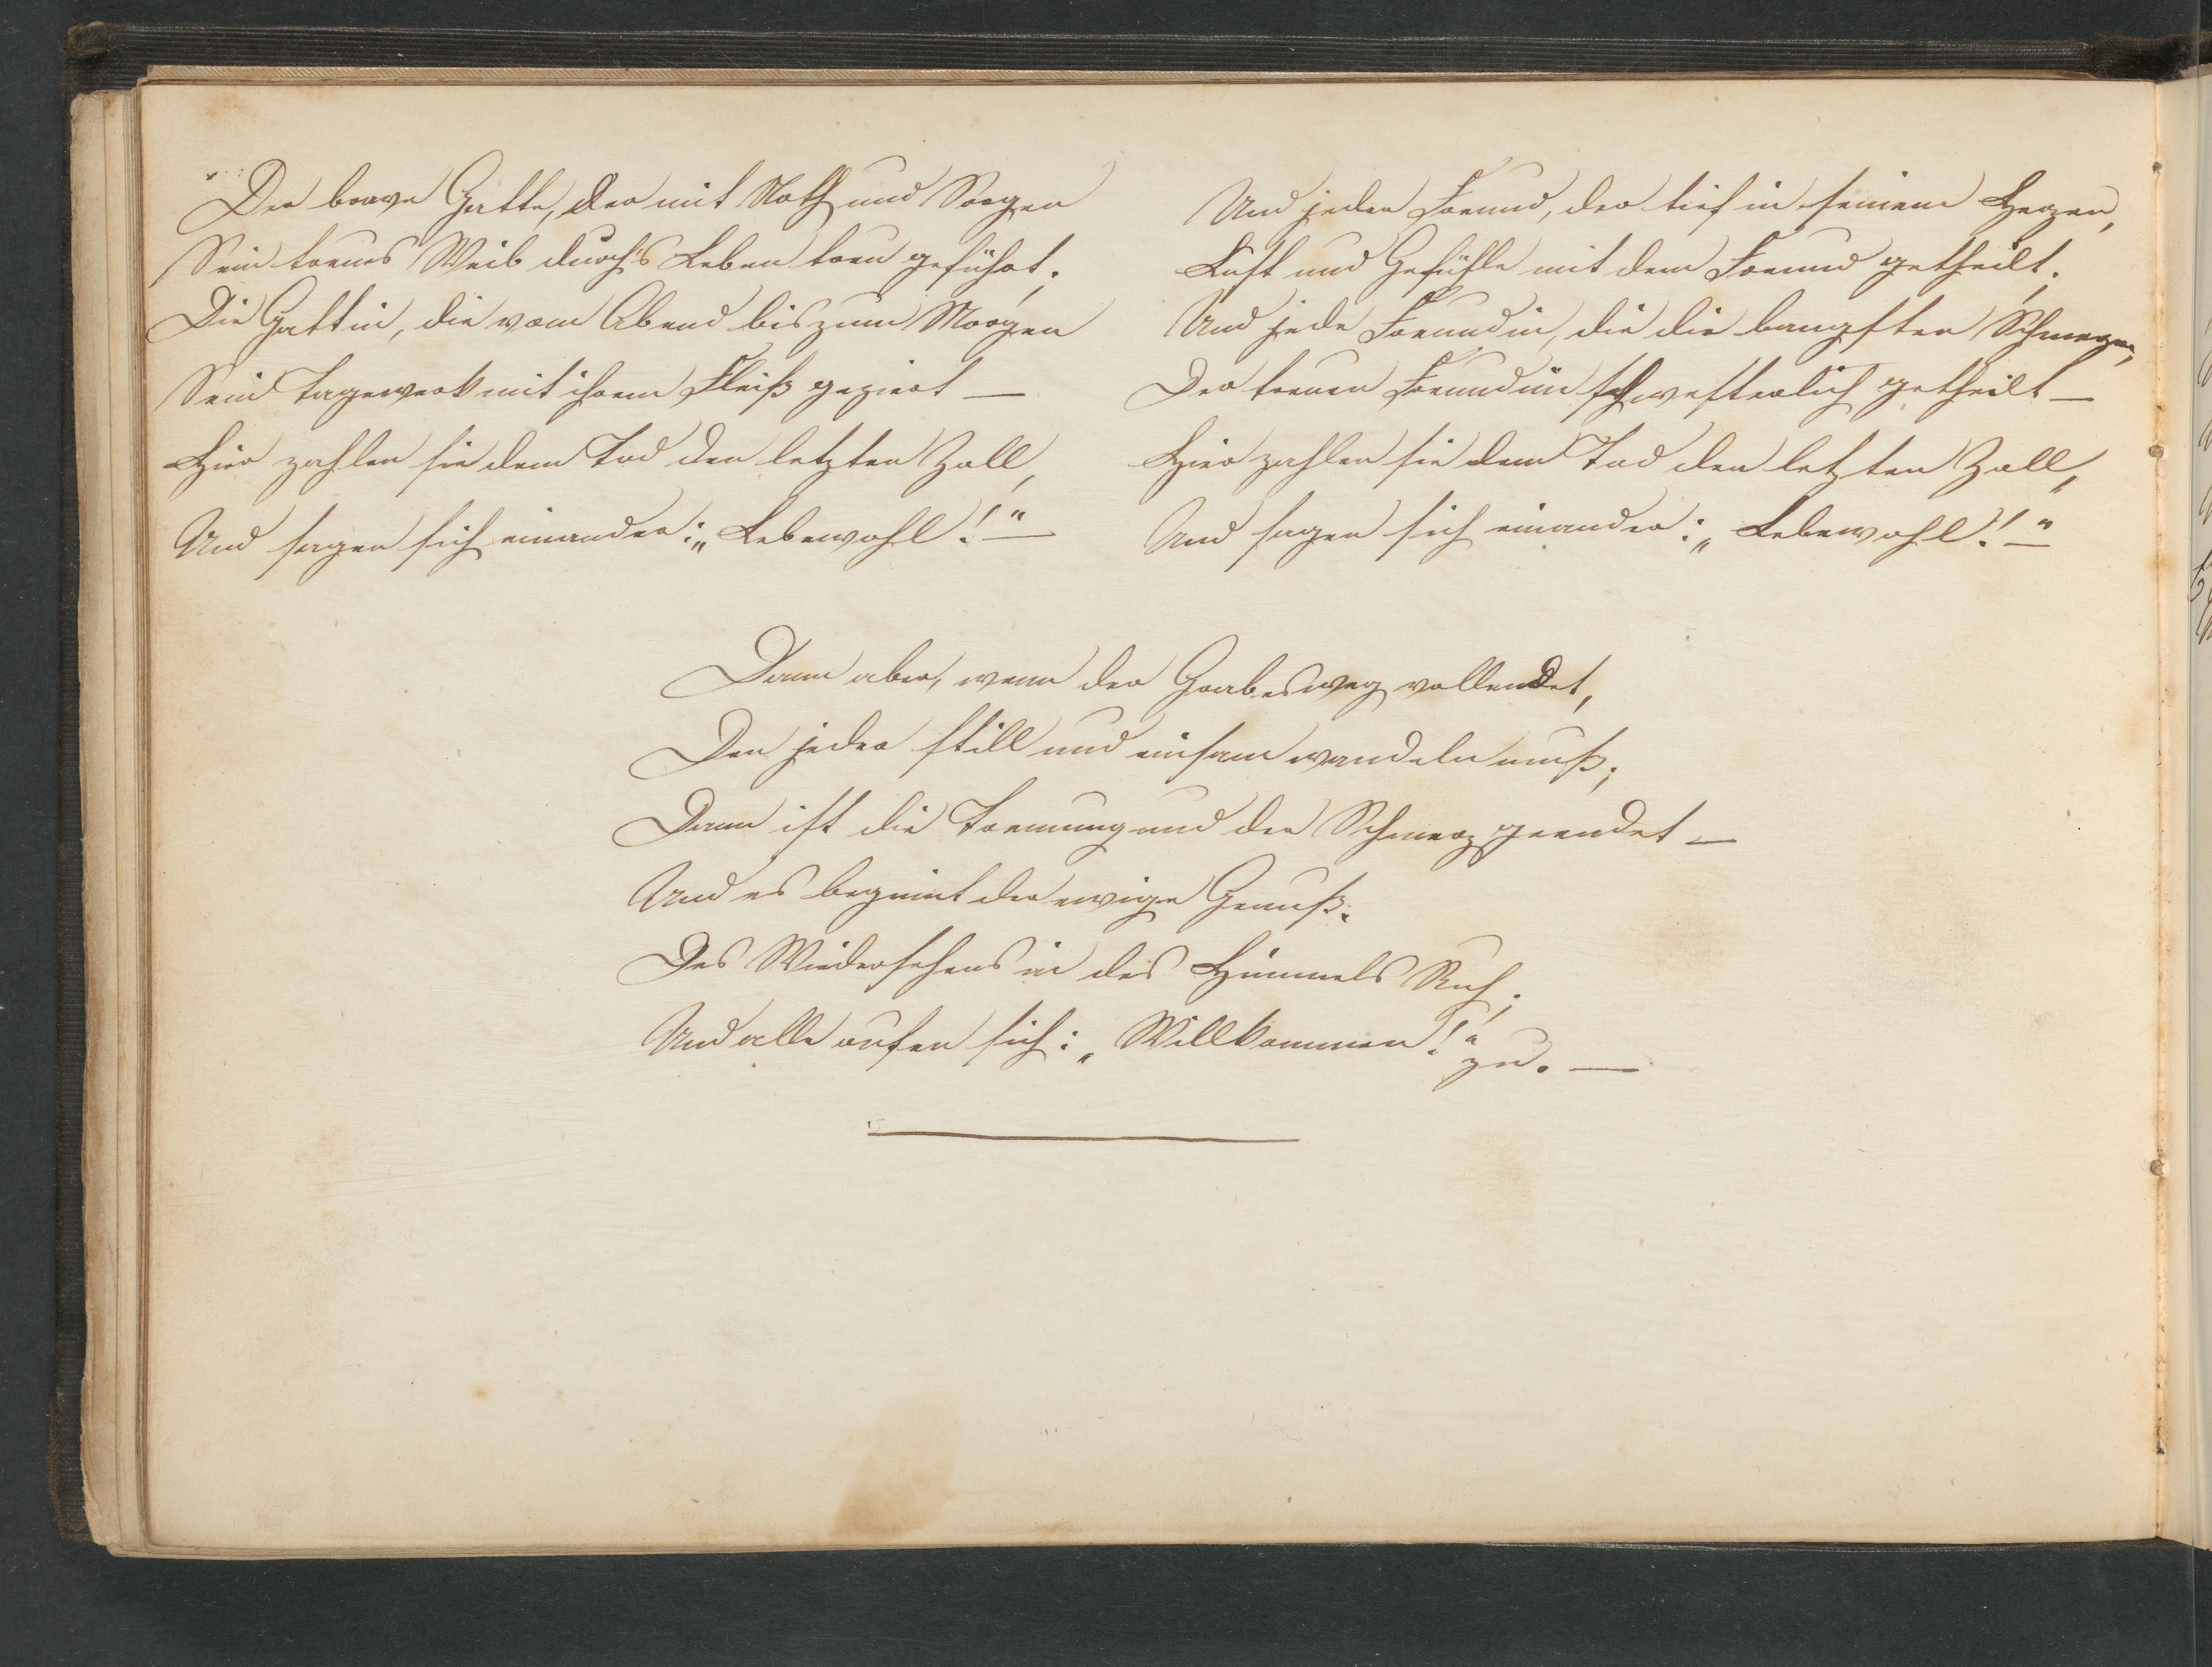 Der brave Gatte, der mit Noth und Sorgen
Sein treues Weib durch's Leben treu geführt;
Die Gattin, die vom Abend bis zum Morgen
Sein Tagewerk mit ihrem Fleiß geziert —
Hier zahlen sie dem Tod den letzten Zoll,
Und sagen sich einander: „Lebewohl!" —
Und jeder Freund, der tief in seinem Herzen,
Lust und Gefühle mit dem Freund getheilt;
Und jede Freundin, die die bangsten Schmerzen,
Der treuen Freundin schwesterlich getheilt —
Hier zahlen sie dem Tod den letzten Zoll,
Und sagen sich einander: „Lebewohl!" —
Dann aber, wenn der Grabesweg vollendet,
Den jeder still und einsam wandeln muß;
Dann ist die Trennung und der Schmerz geendet —
Und es beginnt der ewige Genuß.
Des Wiedersehens in des Himmels Ruh;
Und alle rufen sich: „Willkommen!" zu. —